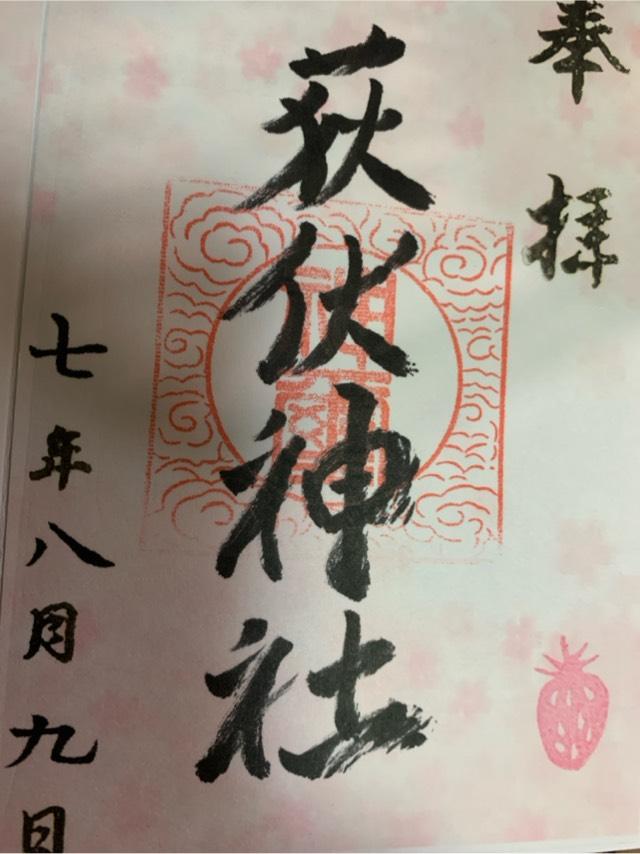 奉拝
荻伏神社
七年八月九日